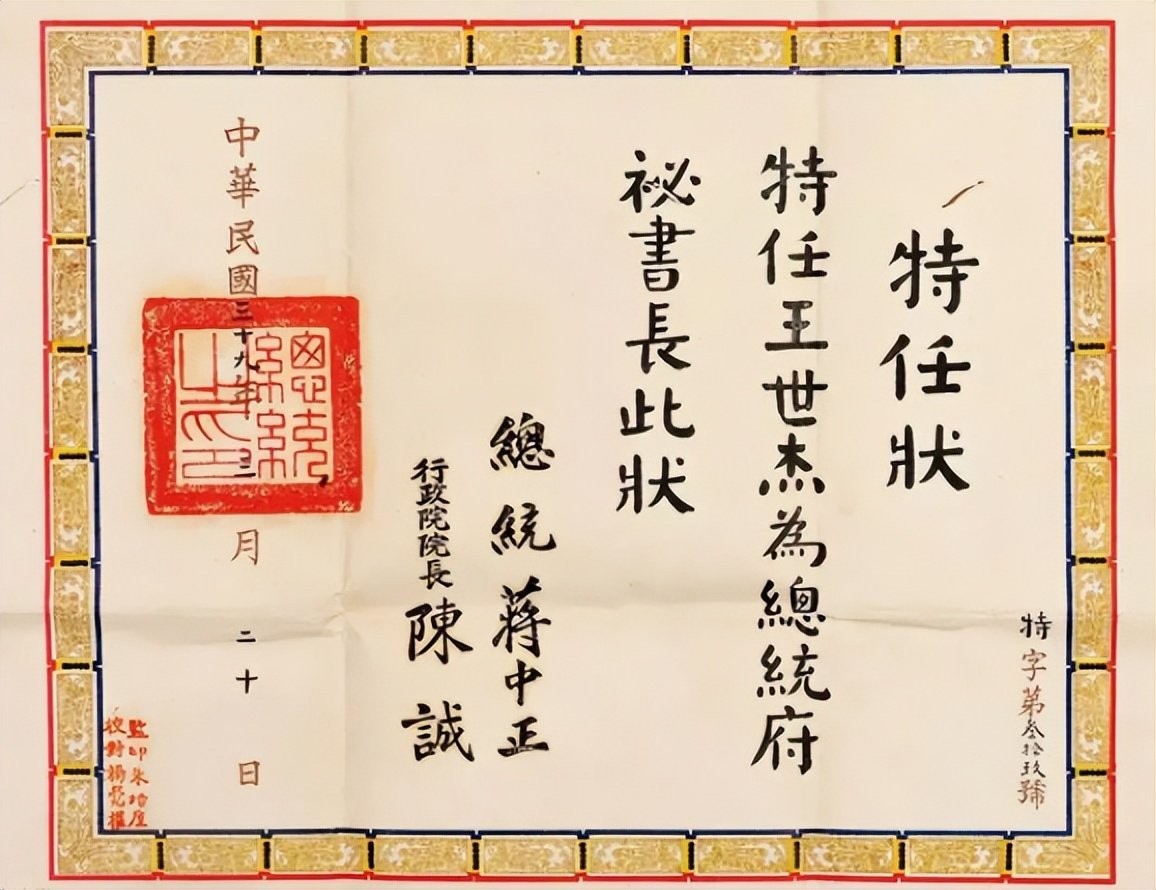 特任狀
特字第叁拾玖號
特任王世杰為總統府
祕書長此狀
總統蔣中正
行政院院長陳誠
中華民國三十九年三月二十日
總統之印
監印朱
校對楊